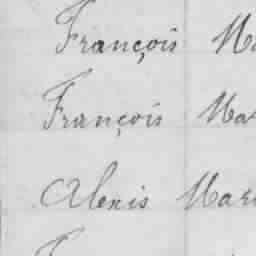 François Ma
François Mar
Alexis Mari